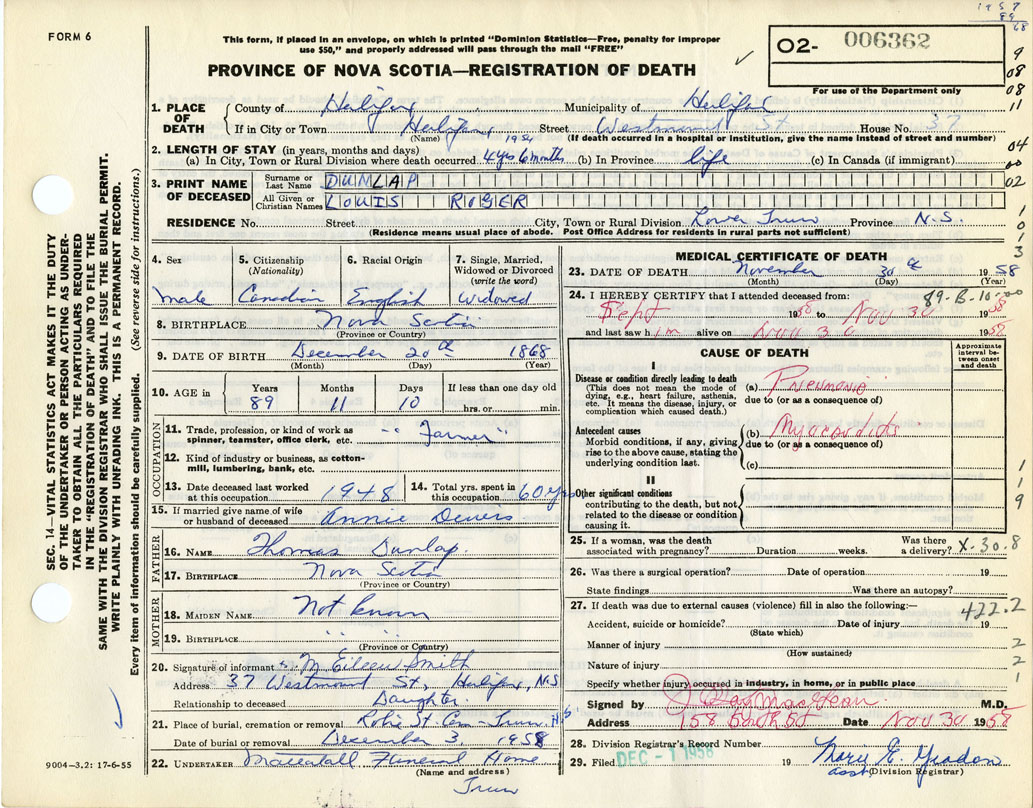 1957
89
68
FORM 6
This form, if placed in an envelope, on which is printed "Dominion Statistics—Free, penalty for improper
use $50," and properly addressed will pass through the mail "FREE"
02- 006362
For use of the Department only
PROVINCE OF NOVA SCOTIA—REGISTRATION OF DEATH
9
08
08
11
04
00
02
1
0
1
3
1. PLACE OF DEATH
County of Halifax Municipality of Halifax
If in City or Town Halifax Street Westmount St House No. 37
(Name) 1954 (If death occurred in a hospital or institution, give the name instead of street and number)
2. LENGTH OF STAY (in years, months and days)
(a) In City, Town or Rural Division where death occurred 4 yrs 6 months (b) In Province life (c) In Canada (if immigrant)
3. PRINT NAME OF DECEASED
Surname or Last Name DUNLAP
All Given or Christian Names LOUIS ROGER
RESIDENCE No. Street City, Town or Rural Division Lower Truro Province N.S.
(Residence means usual place of abode. Post Office Address for residents in rural parts not sufficient)
4. Sex
Male
5. Citizenship (Nationality)
Canadian
6. Racial Origin
English
7. Single, Married, Widowed or Divorced (write the word)
Widowed
8. BIRTHPLACE Nova Scotia
(Province or Country)
9. DATE OF BIRTH December 20th 1868
(Month) (Day) (Year)
10. AGE in
Years Months Days If less than one day old
89 11 10 hrs. or min.
OCCUPATION
11. Trade, profession, or kind of work as spinner, teamster, office clerk, etc. " Farmer "
12. Kind of industry or business, as cotton-mill, lumbering, bank, etc.
13. Date deceased last worked at this occupation 1948
14. Total yrs. spent in this occupation 60 yrs
15. If married give name of wife or husband of deceased Annie
FATHER
16. NAME Thomas Dunlap.
17. BIRTHPLACE Nova Scotia
(Province or Country)
MOTHER
18. MAIDEN NAME Not known
19. BIRTHPLACE " "
(Province or Country)
20. Signature of informant M. Eileen Smith
Address 37 Westmount St, Halifax, N.S
Relationship to deceased Daughter
21. Place of burial, cremation or removal Robie St Cem - Truro NS
Date of burial or removal December 3 1958
22. UNDERTAKER Funeral Home
(Name and address)
Truro
MEDICAL CERTIFICATE OF DEATH
23. DATE OF DEATH November 30th 1958
(Month) (Day) (Year)
89-B-10-00
24. I HEREBY CERTIFY that I attended deceased from:
Sept 1958 to Nov 30 1958
and last saw him alive on Nov 30 1958
CAUSE OF DEATH
Approximate interval between onset and death
I
Disease or condition directly leading to death
(This does not mean the mode of dying, e.g., heart failure, asthenia, etc. It means the disease, injury, or complication which caused death.)
(a) Pneumonia
due to (or as a consequence of)
Antecedent causes
Morbid conditions, if any, giving rise to the above cause, stating the underlying condition last.
(b) Myocarditis
due to (or as a consequence of)
(c)
II
Other significant conditions
contributing to the death, but not related to the disease or condition causing it.
1
1
9
25. If a woman, was the death associated with pregnancy? Duration weeks. Was there a delivery? X-30.8
26. Was there a surgical operation? Date of operation 19
State findings Was there an autopsy?
27. If death was due to external causes (violence) fill in also the following:— 422.2
Accident, suicide or homicide? Date of injury 19
(State which)
Manner of injury 2
(How sustained)
Nature of injury 2
Specify whether injury occurred in industry, in home, or in public place 1
Signed by M.D.
Address 158 St Date Nov 30 1958
28. Division Registrar's Record Number
29. Filed DEC -1 1958 19 Mary E.
asst (Division Registrar)
SEC. 14—VITAL STATISTICS ACT MAKES IT THE DUTY
OF THE UNDERTAKER OR PERSON ACTING AS UNDER-
TAKER TO OBTAIN ALL THE PARTICULARS REQUIRED
IN THE "REGISTRATION OF DEATH" AND TO FILE THE
SAME WITH THE DIVISION REGISTRAR WHO SHALL ISSUE THE BURIAL PERMIT.
WRITE PLAINLY WITH UNFADING INK. THIS IS A PERMANENT RECORD.
Every item of information should be carefully supplied. (See reverse side for instructions.)
9004—3.2: 17-6-55